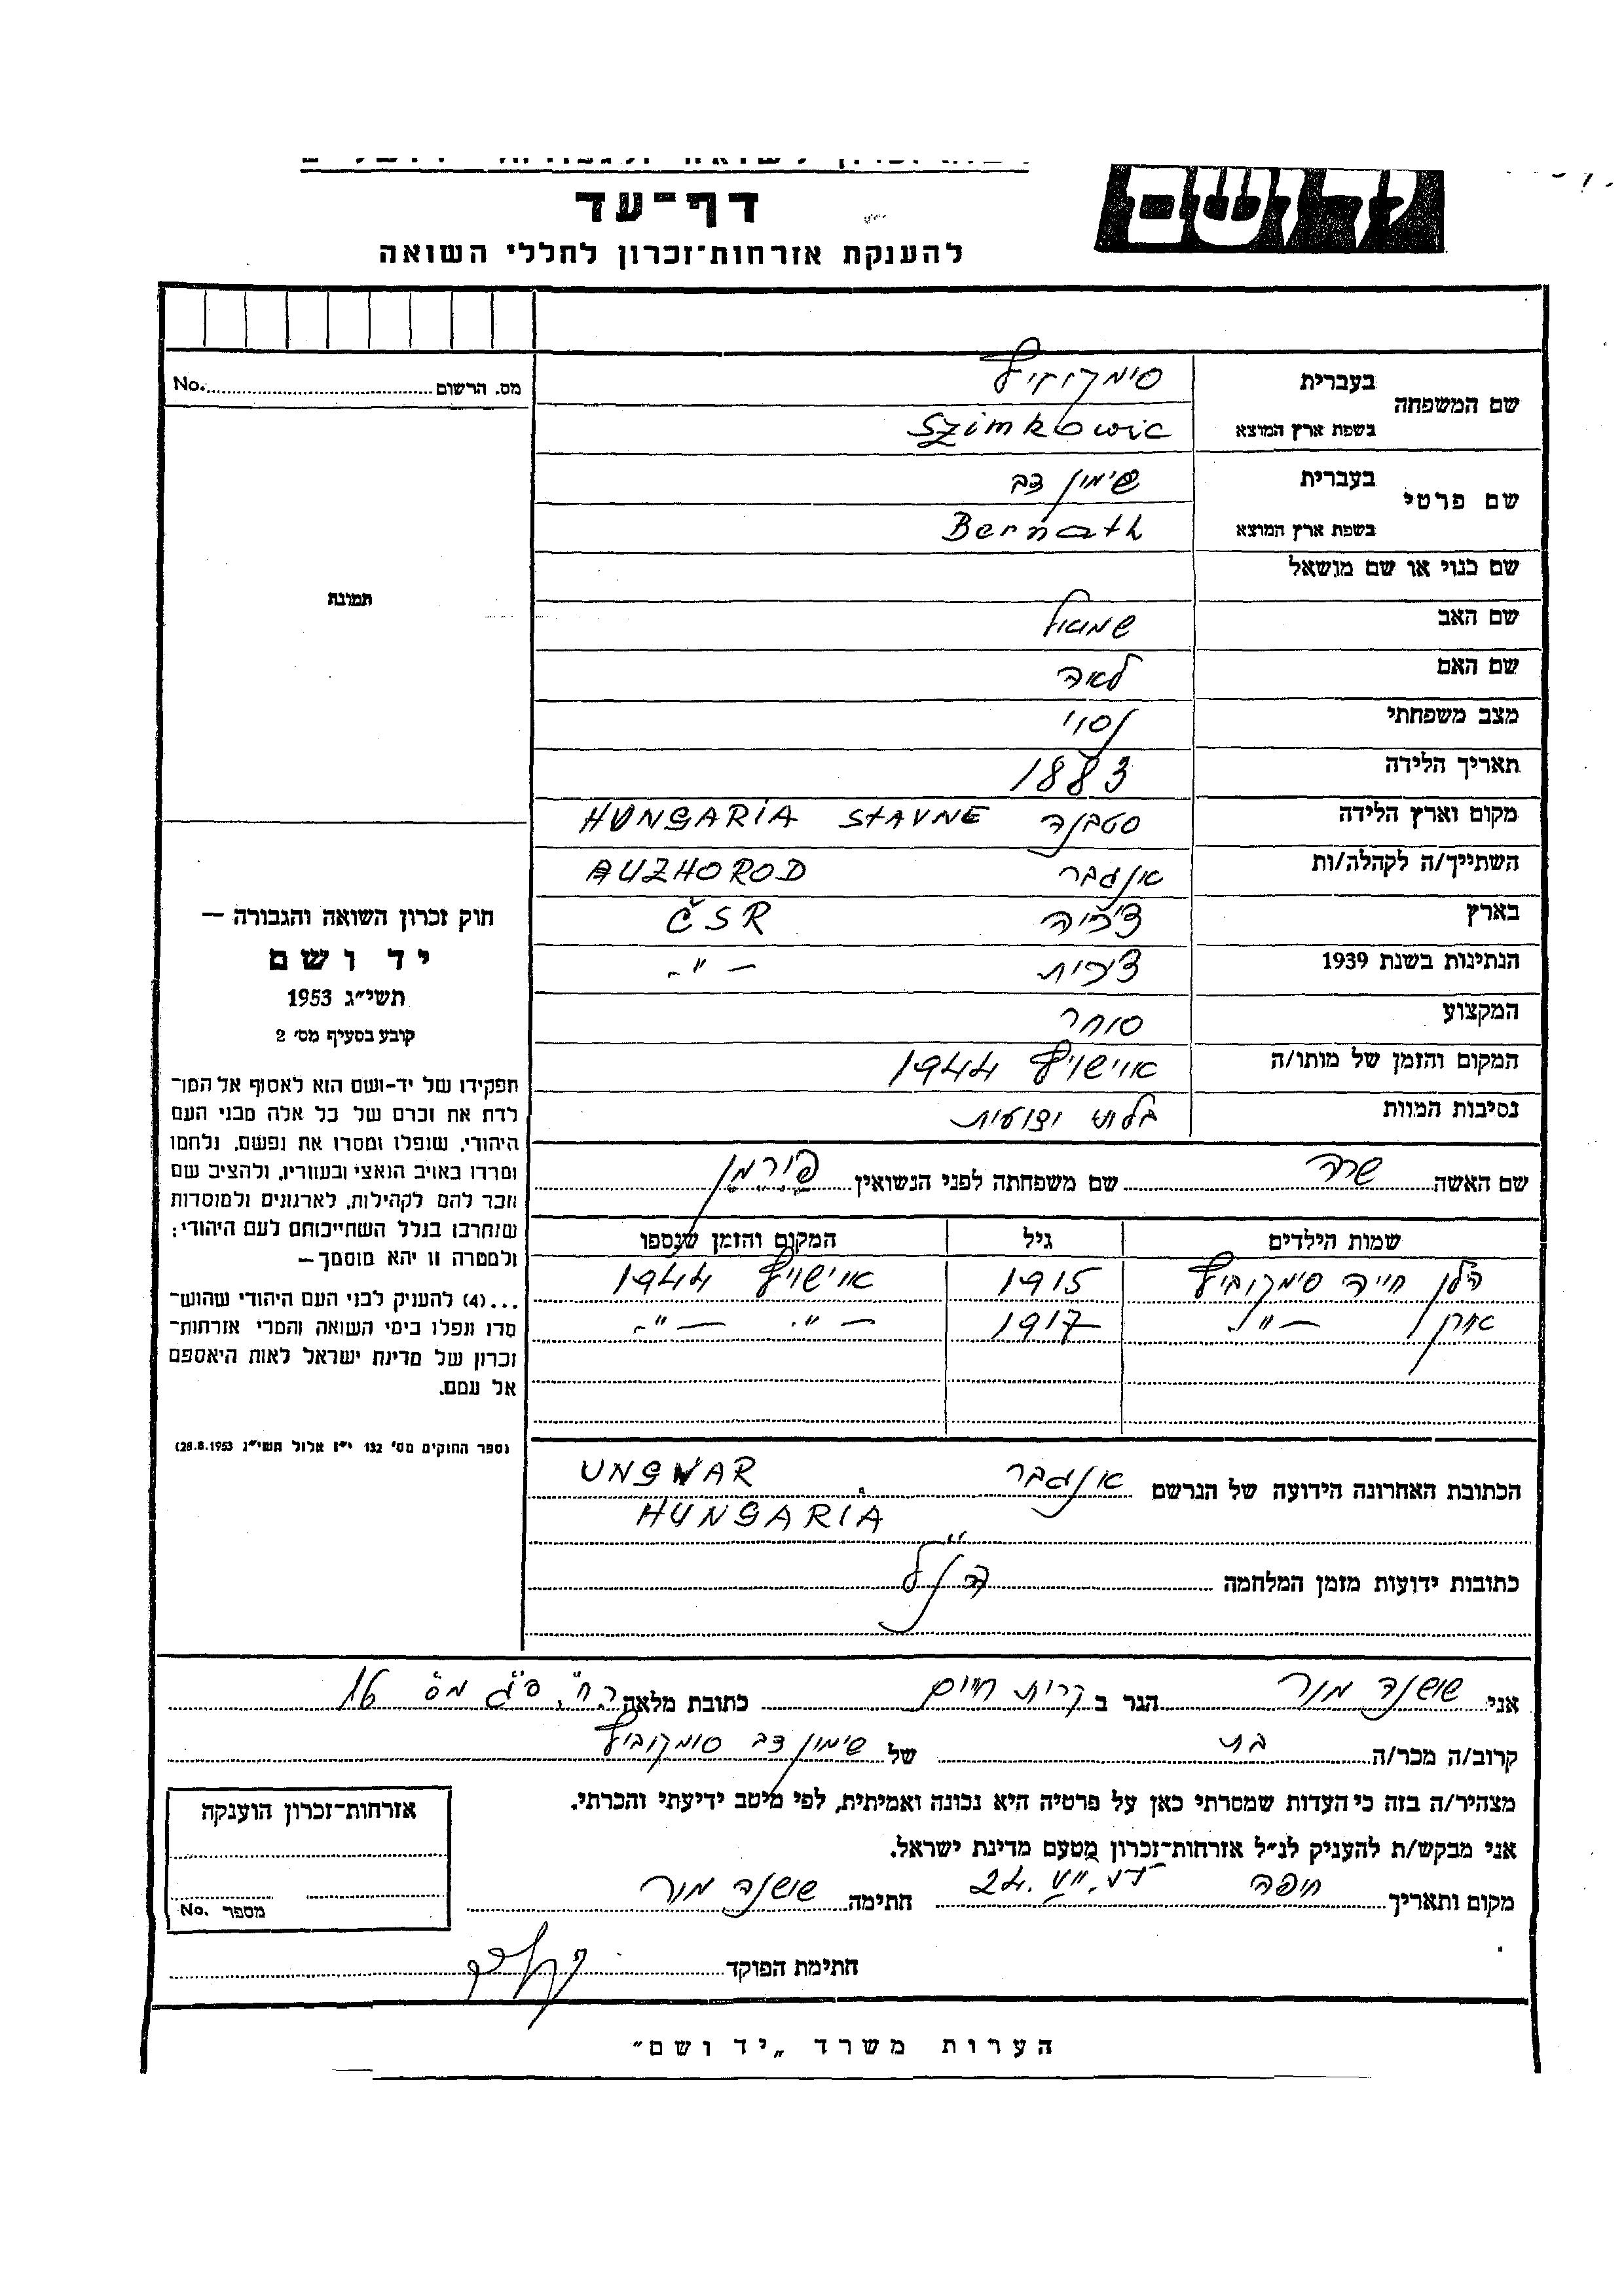 יד ושם
דף־עד
להענקת אזרחות־זכרון לחללי השואה
שם המשפחה בעברית סימקוביץ
בשפת ארץ המוצא Szimkowic
שם פרטי בעברית שימון דב
בשפת ארץ המוצא Bernath
שם כנוי או שם מושאל
שם האב שמואל
שם האם לאה
מצב משפחתי נסוי
תאריך הלידה 1883
מקום וארץ הלידה סטבנה STAVNE HUNGARIA
השתייך/ה לקהלה/ות אונגבר AUZHOROD
בארץ צ'כיה ČSR
הנתינות בשנת 1939 צ'כית -"-
המקצוע סוחר
המקום והזמן של מותו/ה אוישויץ 1944
נסיבות המוות
שם האשה שרה שם משפחתה לפני הנשואין פוירמן
שמות הילדים גיל המקום והזמן שנספו
הלן חייה סימקוביץ 1915 אוישויץ 1944
-"- 1917 -"- -"-
הכתובת האחרונה הידועה של הנרשם אונגבר UNGWAR
HUNGARIA
כתובות ידועות מזמן המלחמה הנ"ל
מס. הרשום No.
תמונה
חוק זכרון השואה והגבורה —
יד ושם
תשי״ג 1953
קובע בסעיף מס׳ 2
תפקידו של יד-ושם הוא לאסוף אל המו־
לדת את זכרם של כל אלה מבני העם
היהודי, שנפלו ומסרו את נפשם, נלחמו
ומרדו באויב הנאצי ובעוזריו, ולהציב שם
וזכר להם לקהילות, לארגונים ולמוסדות
שנחרבו בגלל השתייכותם לעם היהודי;
ולמטרה זו יהא מוסמך—
...(4) להעניק לבני העם היהודי שהוש־
מדו ונפלו בימי השואה והמרי אזרחות־
זכרון של מדינת ישראל לאות היאספם
אל עמם.
(ספר החוקים מס׳ 132 י״ז אלול תשי״ג 28.8.1953)
אני שושנה מור הגר ב קרית חיים כתובת מלאה
קרוב/ה מכר/ה בת של שימון דב סימקוביץ
מצהיר/ה בזה כי העדות שמסרתי כאן על פרטיה היא נכונה ואמיתית, לפי מיטב ידיעתי והכרתי.
אני מבקש/ת להעניק לנ״ל אזרחות־זכרון מטעם מדינת ישראל.
מקום ותאריך חיפה חתימה שושנה מור
חתימת הפוקד
אזרחות־זכרון הוענקה
מספר No.
הערות משרד „יד ושם״